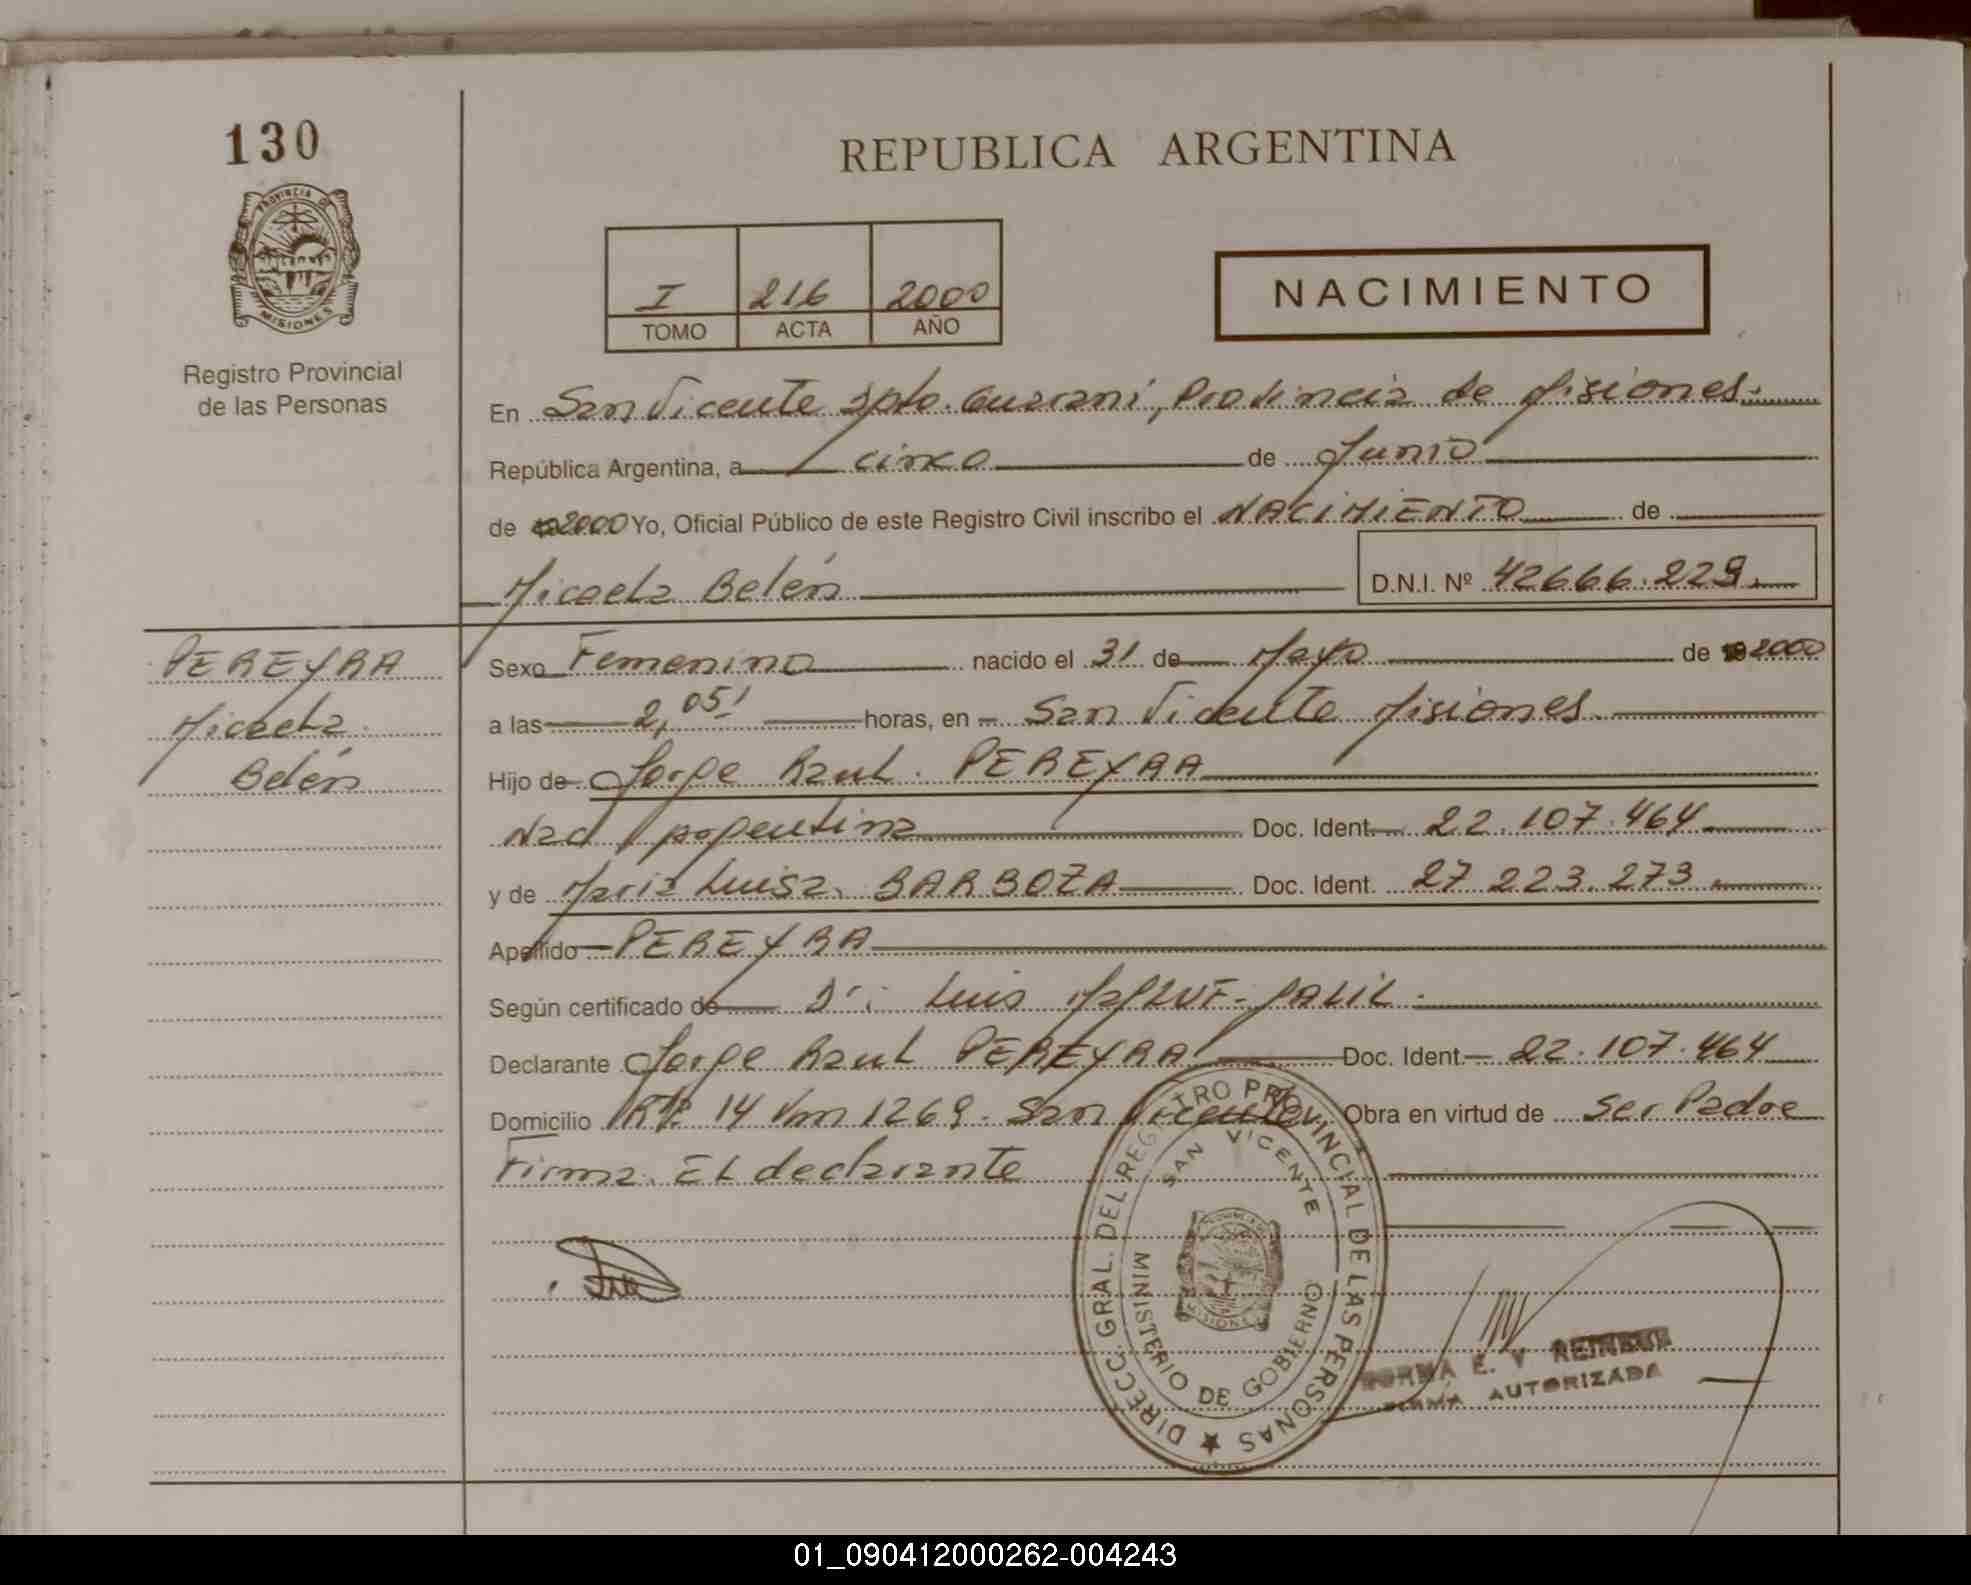 130
PROVINCIA DE
MISIONES
Registro Provincial
de las Personas
REPUBLICA ARGENTINA
I 216 2000
TOMO ACTA AÑO
NACIMIENTO
En San Vicente Dpto. Guaraní, Provincia de Misiones.
República Argentina, a cinco de Junio
de 2000 Yo, Oficial Público de este Registro Civil inscribo el NACIMIENTO de
Micaela Belén D.N.I. Nº 42666.229.
PEREYRA
Micaela
Belén
Sexo Femenino nacido el 31 de Mayo de 2000
a las 2,05' horas, en San Vicente Misiones.
Hijo de Jorge Raul. PEREYRA
Nac Argentina Doc. Ident. 22.107.464
y de Maria Luisa. BARBOZA Doc. Ident. 27 223.273
Apellido PEREYRA
Según certificado de Dr: Luis JALIL.
Declarante Jorge Raul PEREYRA Doc. Ident. 22.107.464
Domicilio 14 Km 1269. San Vicente Obra en virtud de Ser Padre
Firma. El declarante
DIRECC. GRAL. DEL REGISTRO PROVINCIAL DE LAS PERSONAS
SAN VICENTE
MISIONES
MINISTERIO DE GOBIERNO
NORMA E. V
FIRMA AUTORIZADA
01_090412000262-004243